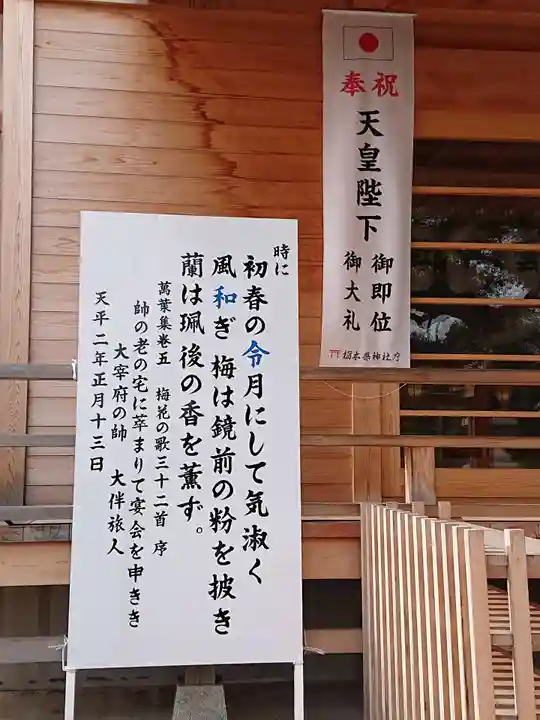 奉祝
天皇陛下
御即位
御大礼
栃木県神社庁
時に
初春の令月にして気淑く
風和ぎ梅は鏡前の粉を披き
蘭は珮後の香を薫ず。
萬葉集巻五 梅花の歌三十二首 序
帥の老の宅に萃まりて宴会を申きき
大宰府の帥 大伴旅人
天平二年正月十三日